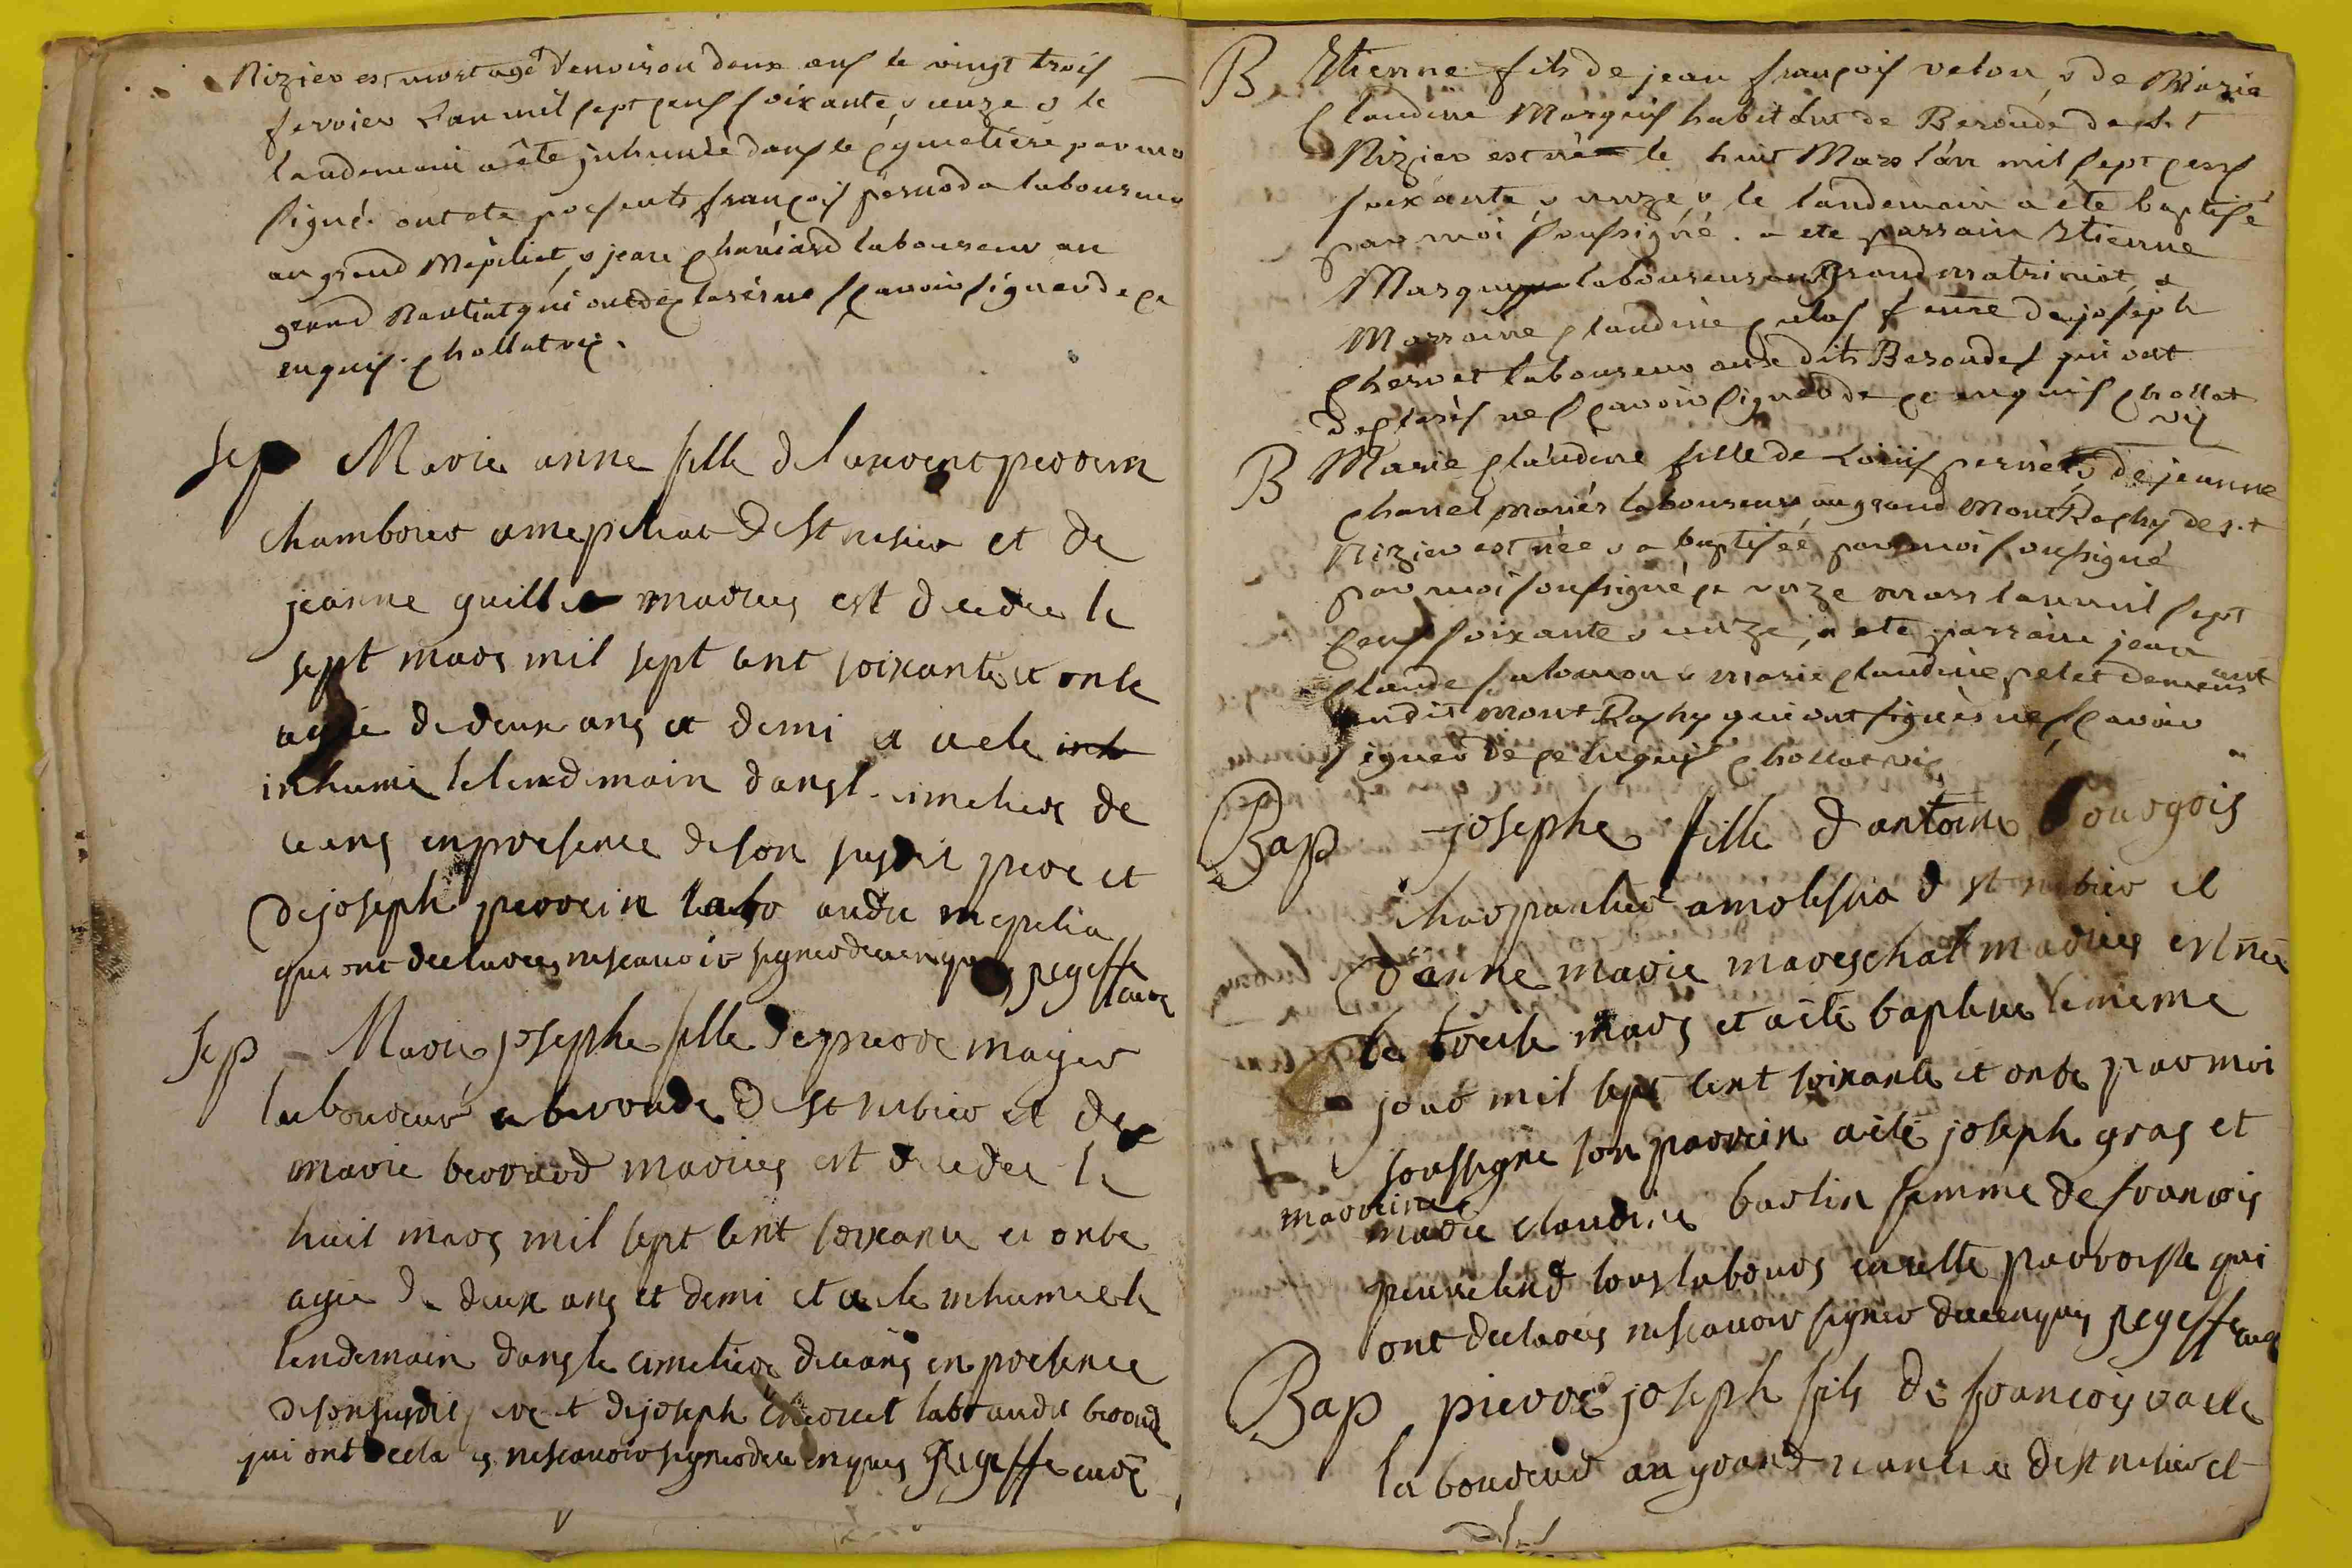 Nizier est mort agé d'environ deux ans le vingt trois
fevrier L'an mil sept cens soixante & unze & le
landemain a été inhumé dans le cymetiere par moi
signé. ont eté presents françois pernoda laboureur
au grand Mépiliat, & jean chanéard laboureur au
grand Nantiat qui ont déclarés ne sçavoir signer de ce
enquis. chollat vic.
sep Marie anne fille de laurent perrein
chambrier a mepeliat de st nisier et de
jeanne guill mariés est decedee le
sept mars mil sept cent soixante et onze
agée de deux ans et demi et a ete inh
inhumé le lendemain dans l cimetiere de
ceans en presence de son susdit pere et
de joseph perrein labr audit mepelia
qui ont declarés ne scavoir signer de ce enquis pegeffe
curé
sep Marie josephe fille de pierre mayer
laboureur a beroude de st nibier et de
marie berrard mariés est decedee le
huit mars mil sept cent soixante et onze
agée de deux ans et demi et a ete inhumée le
lendemain dans le cimetiere de ceans en presence
de son susdit pere et de joseph chervet labr audit beroud
qui ont decla es ne scavoir signer de ce enquis pegeffe curé
B Etienne fils de jean françois velon & de Marie
Claudine Marguis habitant de Beroude de s.t
Nizier est né le huit Mars l'an mil sept cens
soixante & unze & le landemain a été baptisé
par moi soussigné. a eté parrain Etienne
Marguis laboureur au Grand matrinat &
Marraine claudine culas femme de joseph
chervet laboureur aux dits Beroudes qui ont
déclarés ne sçavoir signer de ce enquis chollat
vic
B Marie claudine fille de Louis pernet & de jeanne
chanel mariés laboureur au grand Mont Rachy de s.t
Nizier est née & a baptisée par moi soussigné
par moi soussigné le unze mars l'an mil sept
cens soixante & unze, a eté parrain jean
claude salomon & marie claudine pelet demeurant
audit Mont Rachy qui ont signés ne sçavoir
signer de ce enquis chollat vic
Bap josephe fille d'antoine bourgois
charpantier a molissia d st nibier et
d'anne marie mareschal mariés est née
le treize mars et a été baptisee le meme
jour mil sept cent soixante et onze par moi
soussigné son parrein a été joseph gras et
marreine
marie claudine barlin femme de francois
peuvelend tous labours en cette parroisse qui
ont declarés ne scavoir signer de ce enquis pegeffe curé
Bap pierre joseph fils de francois vacle
laboureur au grand nancia de st nisier et